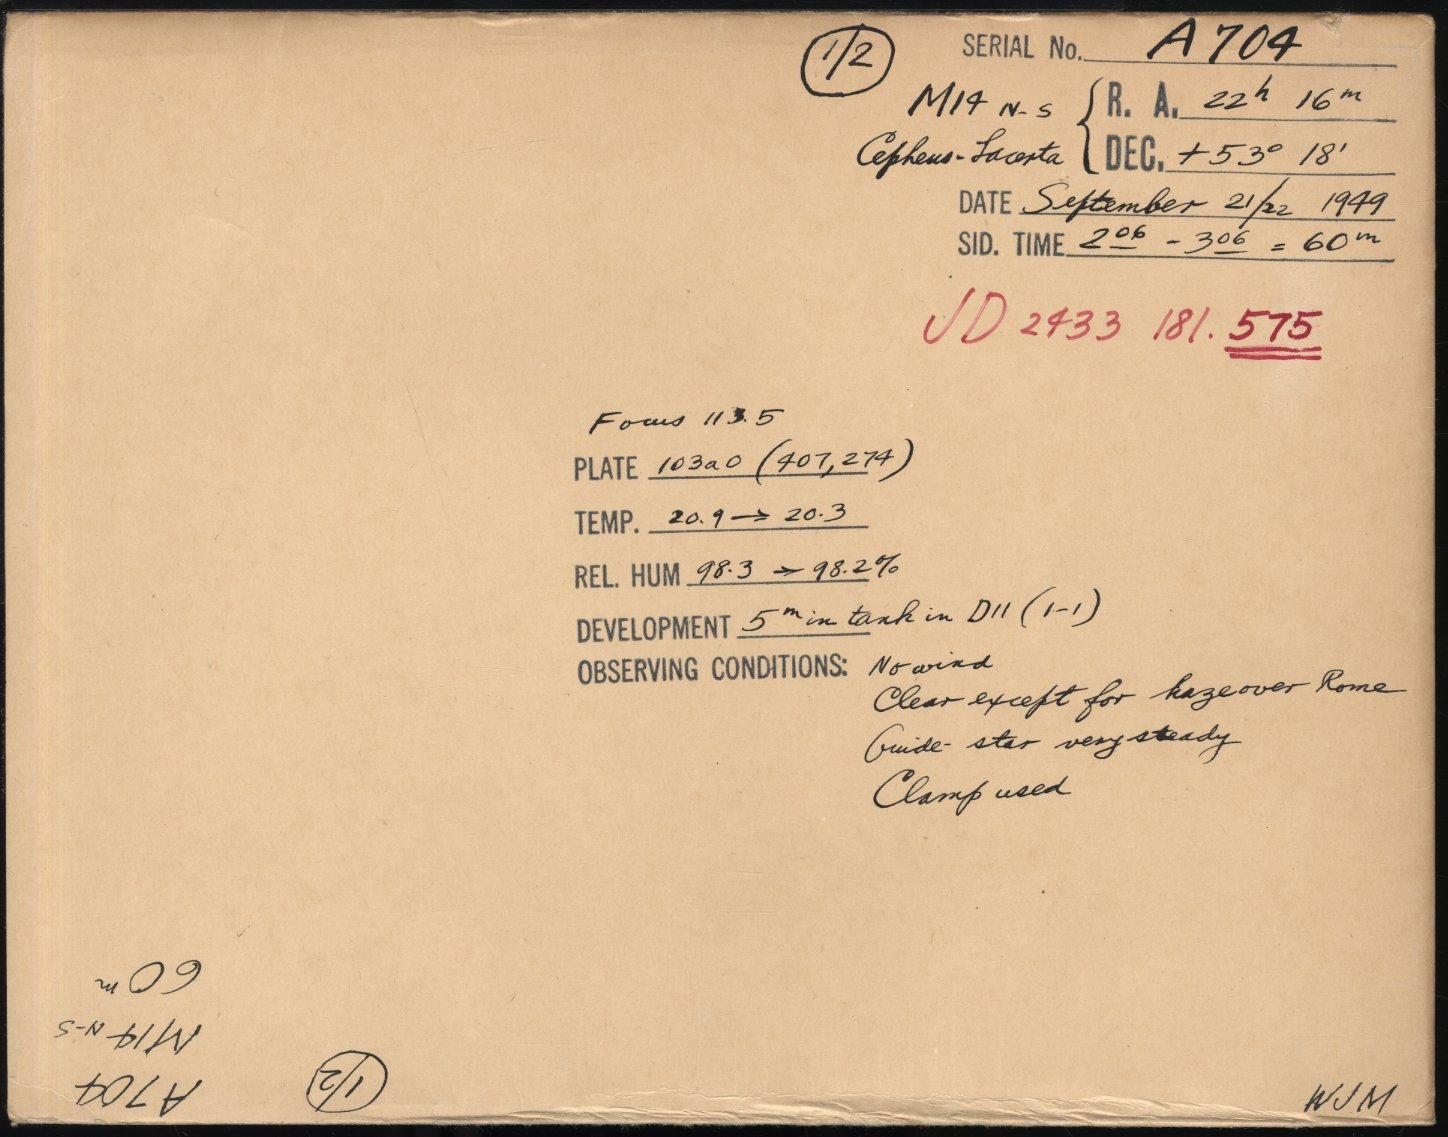 1/2
SERIAL No. A704
M14 N-S { R. A. 22h 16m
Cepheus-Lacerta DEC. +53° 18'
DATE September 21/22 1949
SID. TIME 2 06 - 3 06 = 60m
JD 2433 181.575
Focus 113.5
PLATE 103aO (407,274)
TEMP. 20.9 → 20.3
REL. HUM 98.3 → 98.2%
DEVELOPMENT 5m in tank in D11 (1-1)
OBSERVING CONDITIONS: No wind
Clear except for haze over Rome
Guide-star very steady
Clamp used
A704
M14 N-S
60m
1/2
WJM